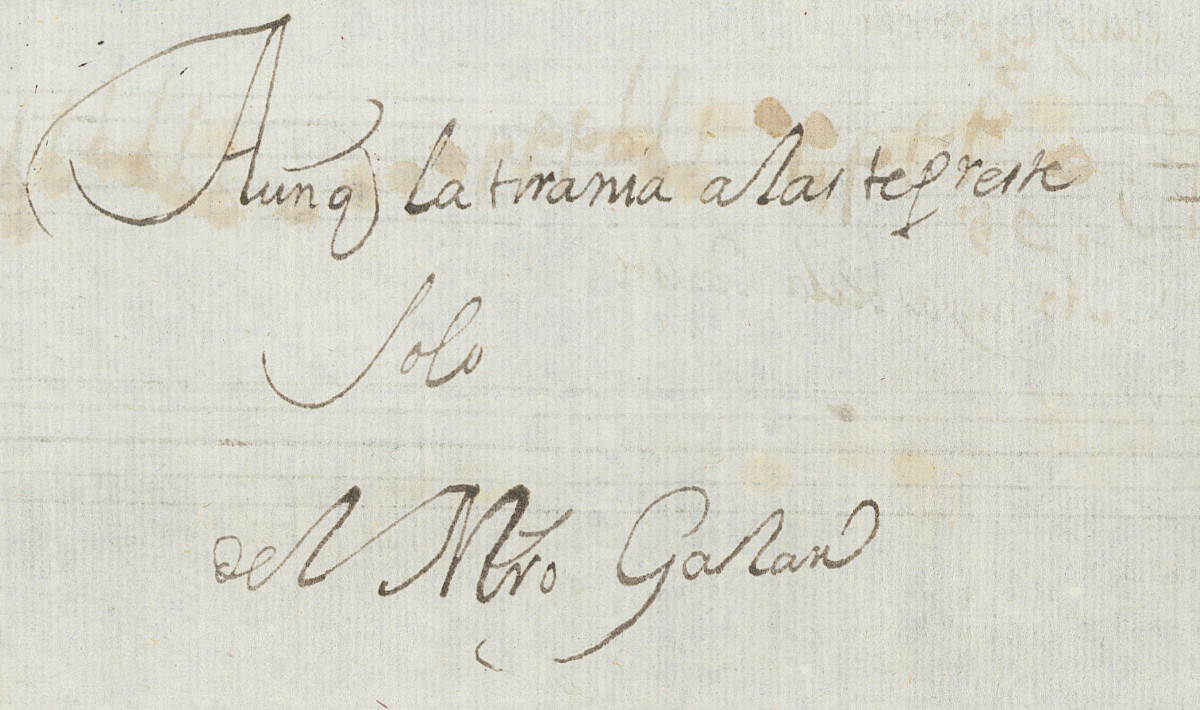 Aunq la tirania alas te preste
Solo
del Mro Galan